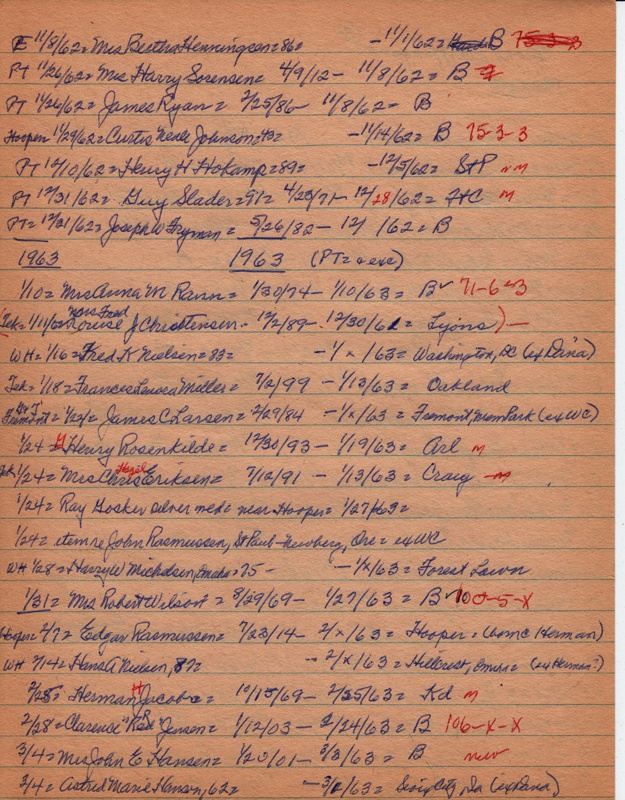 E 11/8/62 = Mrs Bertha Henningsen = 86 = - 11/1/62 = B 75-3-3
PT 11/26/62 = Mrs Harry Sorensen = 4/9/12 - 11/8/62 = B
PT 11/26/62 = James Ryan = 2/25/86 - 11/8/62 = B
Hooper 11/29/62 = Curtis Neale Johnson = 43 = - 11/14/62 = B 75-3-3
PT 12/10/62 = Henry H Hokamp = 89 = - 12/5/62 = S+P nm
PT 12/31/62 = Guy Slader = 91 = 4/23/71 - 12/28/62 = HC m
PT = 12/31/62 = Joseph W Fryman = 5/26/82 - 12/ /62 = B
1963 1963 (PT = & exc)
1/10 = Mrs Anna M Rann = 1/30/74 - 1/10/63 = B ✓ 71-6-3
(Tek = 1/11/62 Mrs Fred Louise J Christensen - 12/2/89 - 12/30/61 = Lyons) -
WH = 1/16 = Fred K Nielsen = 83 = - 1/x/63 = Washington, DC (ex Dana)
Tek = 1/18 = Frances Louisa Miller = 7/2/99 - 1/13/63 = Oakland
Fremont = 1/22 = James C Larsen = 2/29/84 - 1/x/63 = Fremont, Mem Park (ex WC)
1/24 = Henry Rosenkilde = 12/30/93 - 1/19/63 = Arl m
Tek 1/24 = Mrs Chris Hazel Eriksen = 7/12/91 - 1/13/63 = Craig - m
1/24 = Ray Gosker silver med = near Hooper = 1/27/63 =
1/24 = item re John Rasmussen, St Paul - Newberg, Ore = ex WC
WH 1/28 = Harry W Michelsen, Omaha = 75 - - 1/x/63 = Forest Lawn
1/31 = Mrs Robert Wilson = 8/29/69 - 1/27/63 = B ✓ 100-5-X
Hooper = 2/7 = Edgar Rasmussen = 7/23/14 - 2/x/63 = Hooper = (bomc Herman)
WH 2/14 = Hans A Nielsen, 87 = - 2/x/63 = Hillcrest, Omaha = (ex Herman?)
2/28 = Herman H Jacobs = 10/15/69 - 2/25/63 = Kd m
2/28 = Clarence "Rex" Jensen = 1/12/03 - 2/24/63 = B 106-x-x
3/4 = Mrs John E Hansen = 1/20/01 - 3/3/63 = B new
3/4 = Astrid Marie Hansen, 62 = - 3/1/63 = Sioux City, Ia (ex Dana)